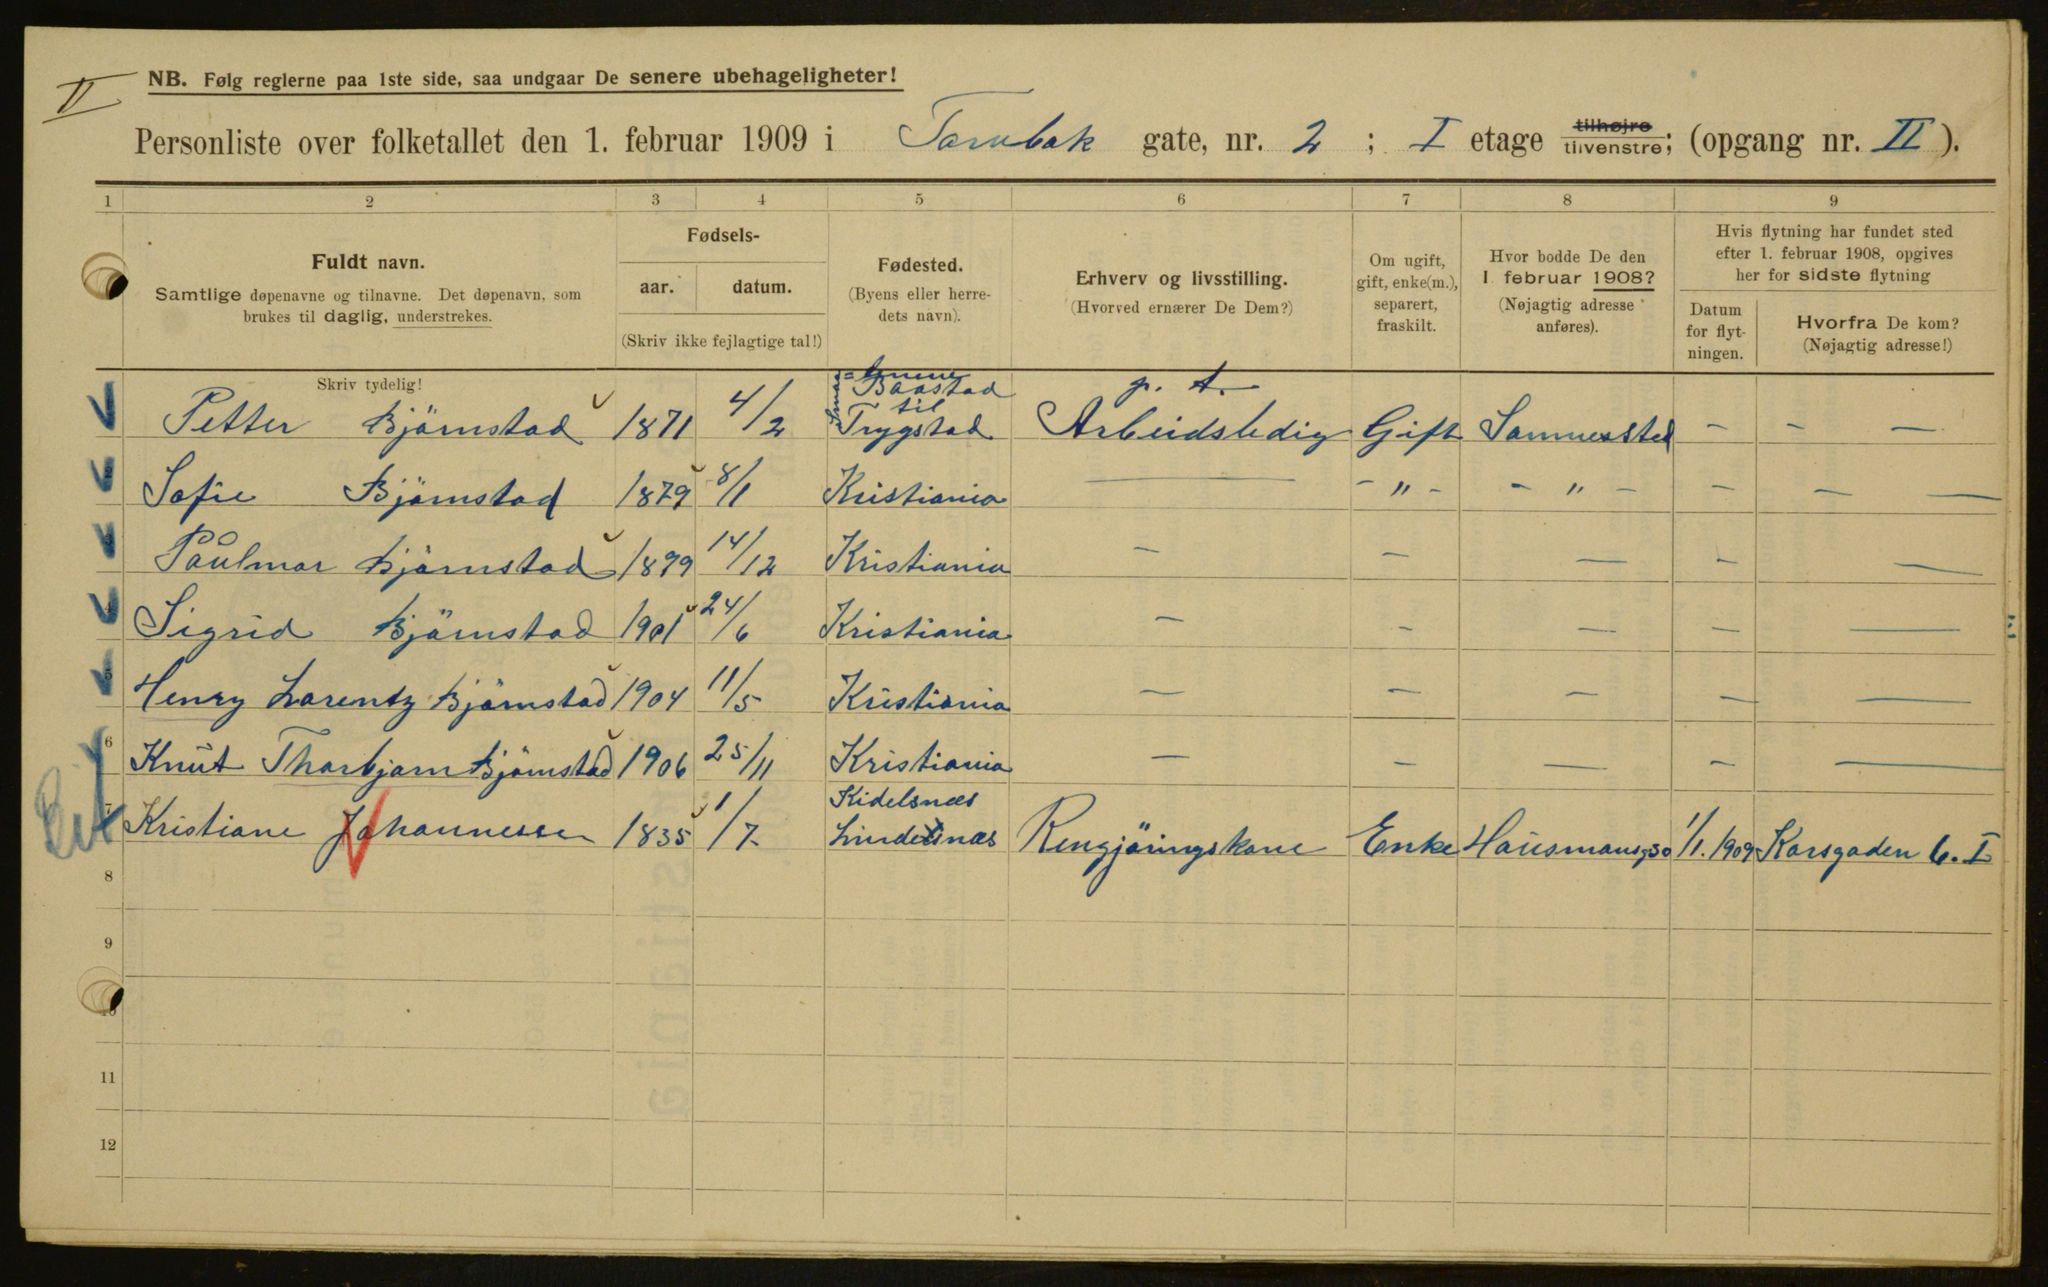 II
NB. Følg reglerne paa 1ste side, saa undgaar De senere ubehageligheter!
Personliste over folketallet den 1. februar 1909 i Tornbak gate, nr. 2 ; I etage tilhøjre tilvenstre; (opgang nr. II ).
1 2 3 4 5 6 7 8 9
Fuldt navn.
Samtlige døpenavne og tilnavne. Det døpenavn, som
brukes til daglig, understrekes.
Skriv tydelig!
Fødsels-
aar. datum.
(Skriv ikke fejlagtige tal!)
Fødested.
(Byens eller herre-
dets navn).
Erhverv og livsstilling.
(Hvorved ernærer De Dem?)
Om ugift,
gift, enke(m.),
separert,
fraskilt.
Hvor bodde De den
1 februar 1908?
(Nøjagtig adresse
anføres).
Hvis flytning har fundet sted
efter 1. februar 1908, opgives
her for sidste flytning
Datum
for flyt-
ningen.
Hvorfra De kom?
(Nøjagtig adresse!)
Smaa=lenene
Baastad p. t.
til
Petter Bjørnstad 1871 4/2 Trygstad Arbeidsledig Gift Sammested - - —
Sofie Bjørnstad 1879 8/1 Kristiania — - " - - " - — — —
Paulmar Bjørnstad 1899 14/12 Kristiania — — — - —
Sigrid Bjørnstad 1901 24/6 Kristiania — - — — —
5 Henry Lorentz Bjørnstad 1904 11/5 Kristiania — — — — —
6 Knut Thorbjørn Bjørnstad 1906 25/11 Kristiania — — — — —
Kidelsnæs
7 Kristiane Johannessen 1835 1/7 Lindesnæs Rengjøringskone Enke Hausmansg 30 1/1. 1909 Korsgaden 6. I
8
9
10
11
12